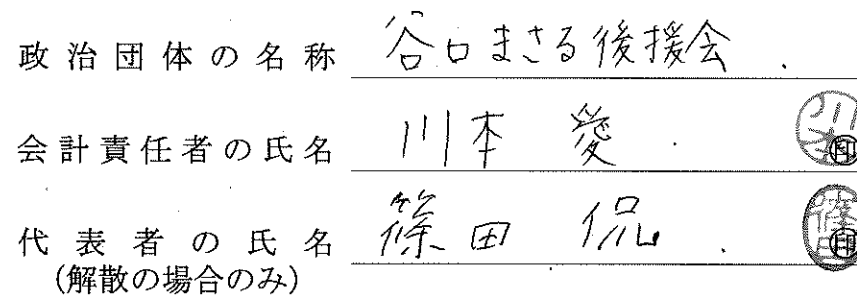 政治団体の名称 谷口まさる後援会
会計責任者の氏名 川本 愛 川本 印
代表者の氏名 篠田 侃 篠田 印
(解散の場合のみ)